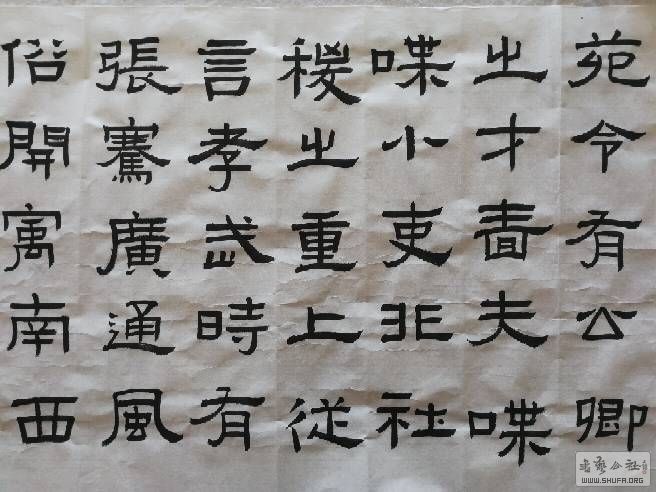 苑令有公卿
之才嗇夫喋
喋小吏非社
稷之重上從
言孝武時有
張騫廣通風
俗開寓南西
書藝公社
WWW.SHUFA.ORG